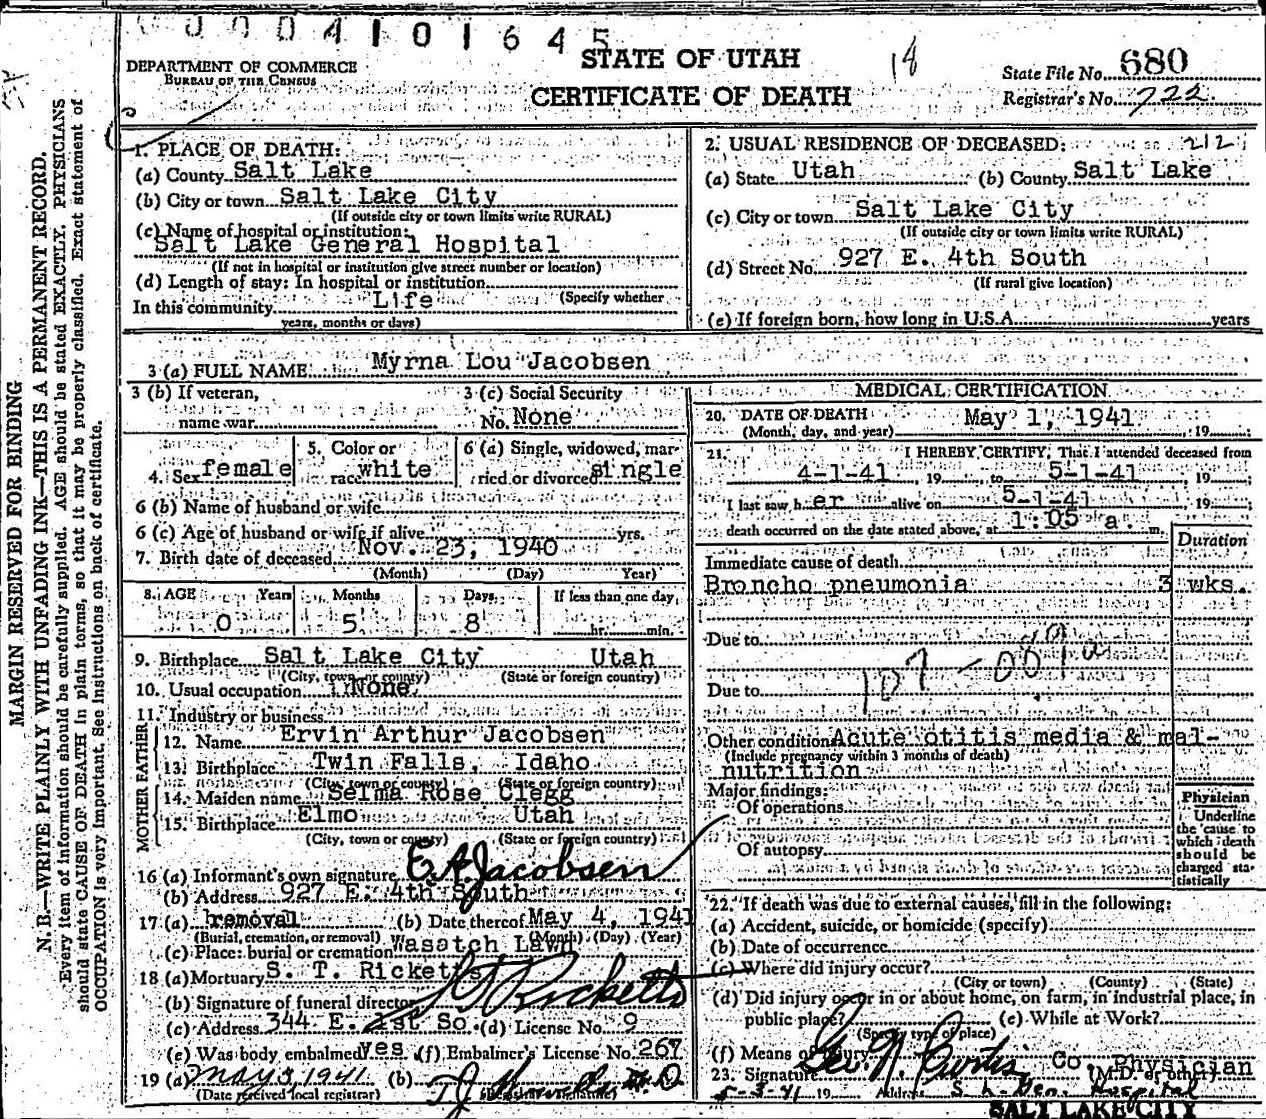 0004101645
STATE OF UTAH
CERTIFICATE OF DEATH
DEPARTMENT OF COMMERCE
BUREAU OF THE CENSUS
18
State File No. 680
Registrar's No. 722
MARGIN RESERVED FOR BINDING
N. B.—WRITE PLAINLY WITH UNFADING INK—THIS IS A PERMANENT RECORD.
Every item of information should be carefully supplied. AGE should be stated EXACTLY. PHYSICIANS
should state CAUSE OF DEATH in plain terms, so that it may be properly classified. Exact statement of
OCCUPATION is very important. See instructions on back of certificate.
1. PLACE OF DEATH:
(a) County Salt Lake
(b) City or town Salt Lake City
(If outside city or town limits write RURAL)
(c) Name of hospital or institution:
Salt Lake General Hospital
(If not in hospital or institution give street number or location)
(d) Length of stay: In hospital or institution
(Specify whether
In this community Life
years, months or days)
2. USUAL RESIDENCE OF DECEASED: 212
(a) State Utah (b) County Salt Lake
(c) City or town Salt Lake City
(If outside city or town limits write RURAL)
(d) Street No. 927 E. 4th South
(If rural give location)
(e) If foreign born, how long in U.S.A. years
3 (a) FULL NAME Myrna Lou Jacobsen
3 (b) If veteran,
name war
3 (c) Social Security
No. None
4. Sex female
5. Color or
race white
6 (a) Single, widowed, mar-
ried or divorced single
6 (b) Name of husband or wife
6 (c) Age of husband or wife if alive yrs.
7. Birth date of deceased Nov. 23, 1940
(Month) (Day) Year)
8. AGE Years Months Days If less than one day
0 5 8 hr. min.
9. Birthplace Salt Lake City Utah
(City, town or county) (State or foreign country)
10. Usual occupation None
11. Industry or business
FATHER
12. Name Ervin Arthur Jacobsen
13. Birthplace Twin Falls, Idaho
(City, town or county) (State or foreign country)
MOTHER
14. Maiden name Selma Rose Clegg
15. Birthplace Elmo Utah
(City, town or county) (State or foreign country)
16 (a) Informant's own signature E A Jacobsen
(b) Address 927 E. 4th South
17 (a) removal (b) Date thereof May 4, 1941
(Burial, cremation, or removal) (Month) (Day) (Year)
(c) Place: burial or cremation Wasatch Lawn
18 (a) Mortuary S. T. Ricketts
(b) Signature of funeral director S T Ricketts
(c) Address 344 E. 1st So. (d) License No. 9
(e) Was body embalmed? yes (f) Embalmer's License No. 267
19 (a) May 3, 1941 (b)
(Date received local registrar) (Registrar's signature)
MEDICAL CERTIFICATION
20. DATE OF DEATH May 1, 1941
(Month, day, and year) 19
21. I HEREBY CERTIFY, That I attended deceased from
4-1-41, 19 to 5-1-41, 19 ;
I last saw h er alive on 5-1-41, 19 ;
death occurred on the date stated above, at 1:05 a. m.
Duration
Immediate cause of death
Broncho pneumonia 3 wks.
Due to
107
Due to
Other condition Acute otitis media & mal-
(Include pregnancy within 3 months of death)
nutrition
Major findings:
Of operations
Of autopsy
Physician
Underline
the cause to
which death
should be
charged sta-
tistically
22. If death was due to external causes, fill in the following:
(a) Accident, suicide, or homicide (specify)
(b) Date of occurrence
(c) Where did injury occur?
(City or town) (County) (State)
(d) Did injury occur in or about home, on farm, in industrial place, in
public place? (e) While at Work?
(Specify type of place)
(f) Means of injury
23. Signature Geo. N. Curtis Co. Physician
(M.D. or other)
5-3-41 19 Address S. L. Gen. Hospital
SALT LAKE CITY